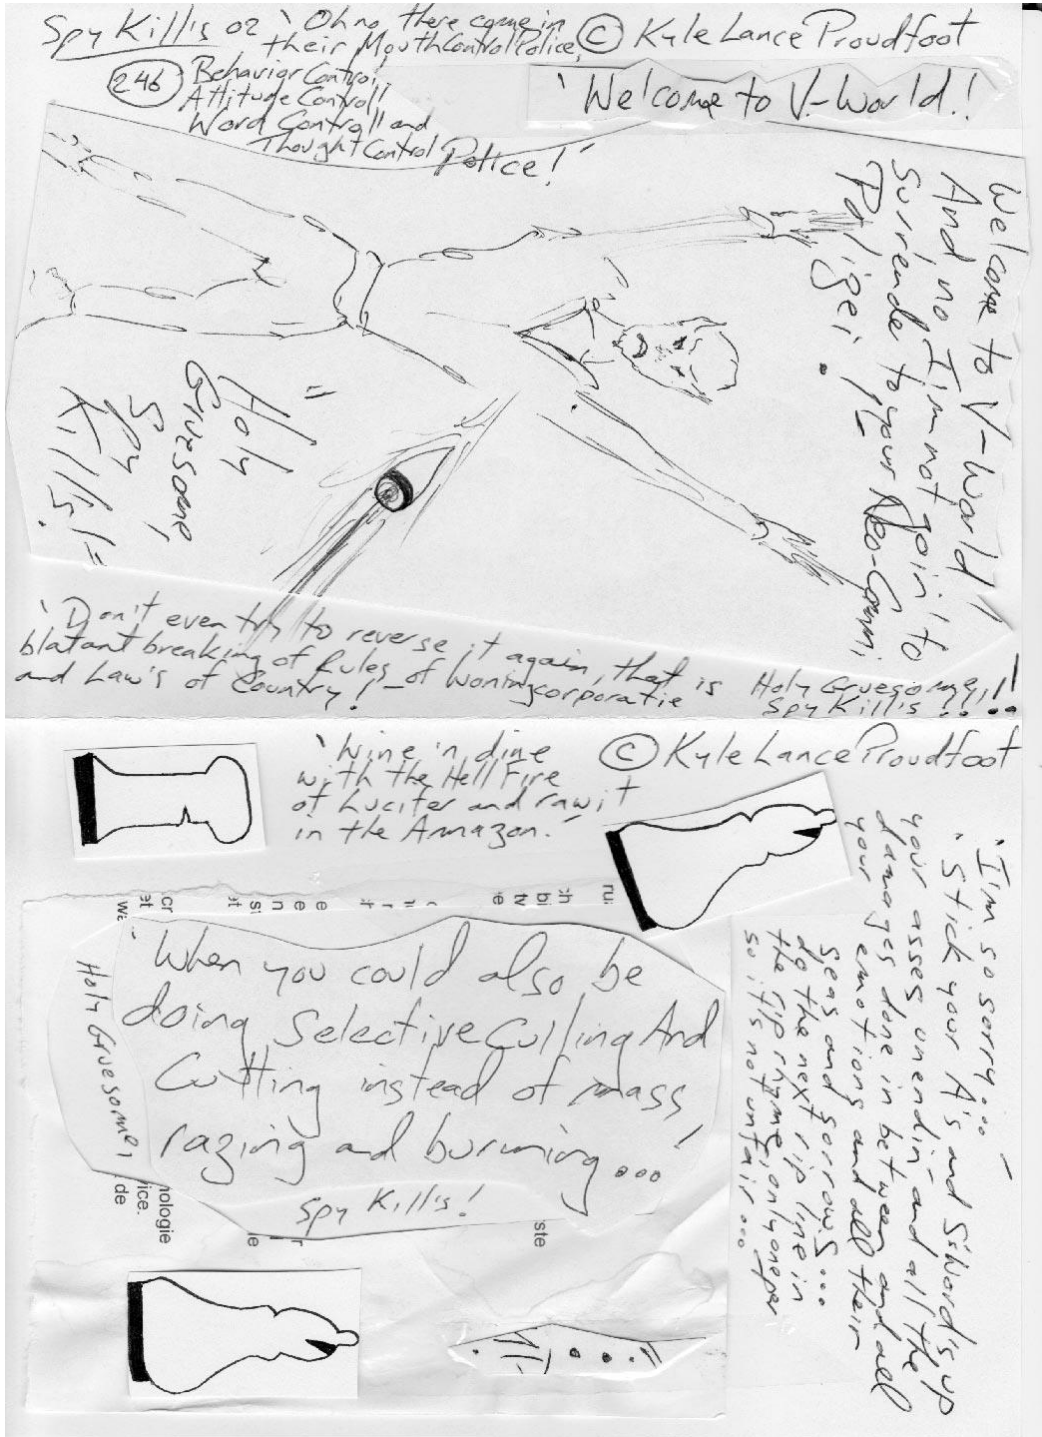 Spy Kill's 02
'Oh no, there come in
their MouthControlPolice,
© Kyle Lance Proudfoot
246
Behavior Control,
Attitude Controll
Word Controll and
Thought Control Police!'
'Welcome to V-World!
Welcome to V-World!
And no I'm not goin' to
surrende to your Neo-Commi
"Holy
Gruesome,
Spy
Kill's!"
'Don't even try to reverse it again, that is
blatant breaking of Rules of Woningcorporatie
and Law's of Country!'
Holy Gruesome,
Spy Kill's!!
'Wine 'n dine
with the Hell Fire
of Lucifer and raw it
in the Amazon.'
© Kyle Lance Proudfoot
'I'm so sorry...'
'Stick your A's and SWord's up
your asses unendin' and all the
damages done in between and all
your emotions and all their
seas and sorrows...
do the next rip line in
the rip rhyme, only one per
so it's not unfair...
'When you could also be
doing Selective Culling And
Cutting instead of mass
razing and burning...'
Holy Gruesome,
Spy Kill's!
nologie
ice.
de
le
ste